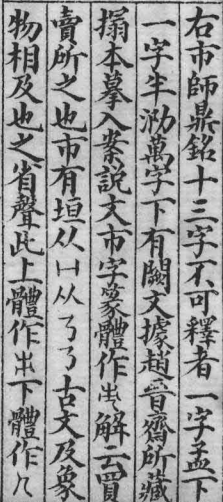 右市師鼎銘十三字不可釋者一字盂下
一字半泐萬字下有闕文據趙晉齋所藏
搨本摹入案說文市字篆體作㞢解云買
賣所之也市有垣从冂从㇋㇋古文及象
物相及也之省聲此上體作㞢下體作八